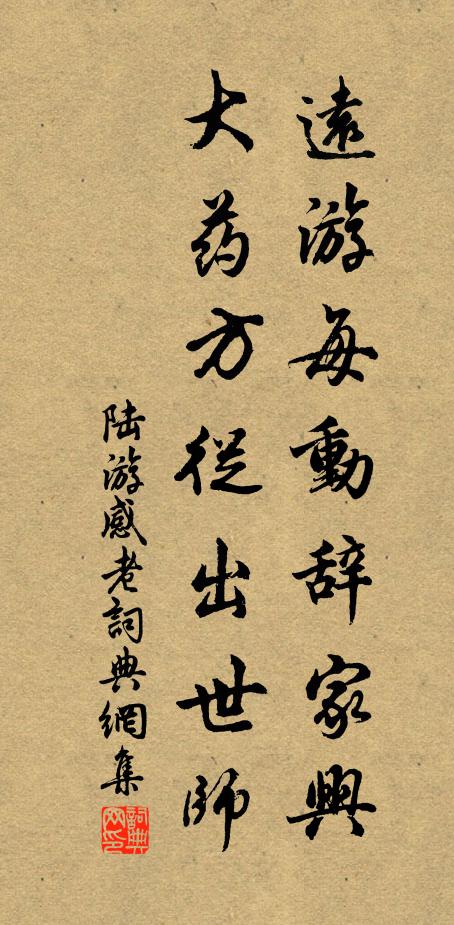 遠游每動辞家興
大药方従出世師
陆游感老詞典網集
詞典网印